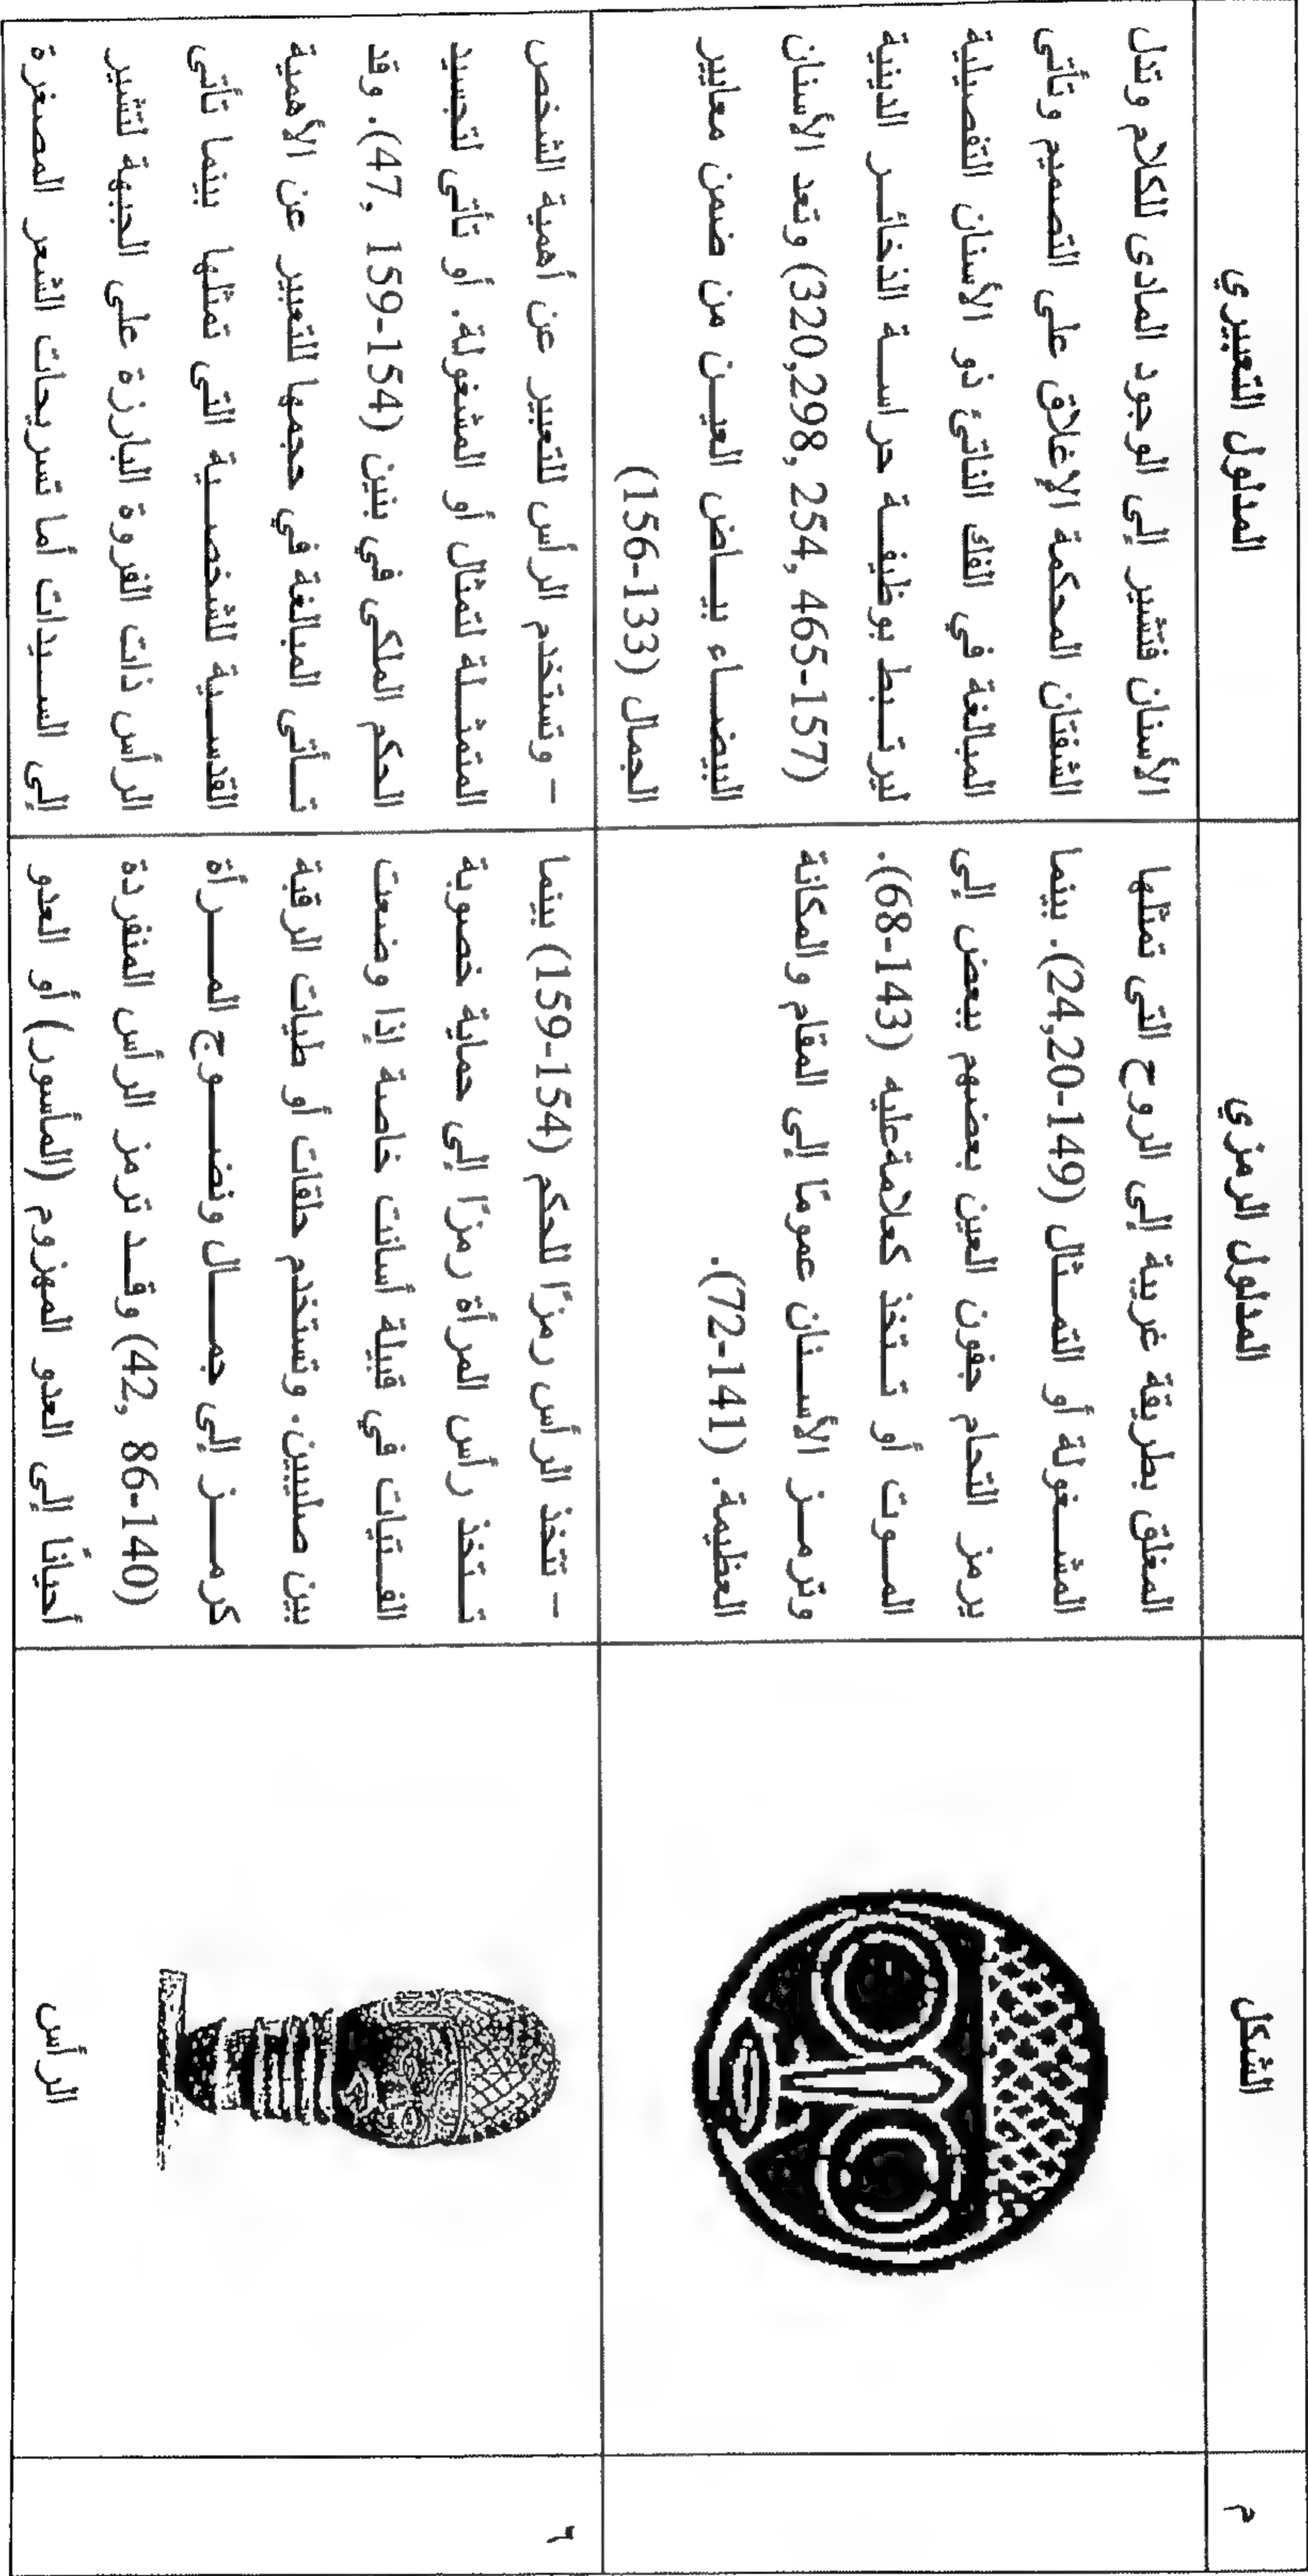 م
الشكل
المدلول الرمزي
المدلول التعبيري
المغلق بطريقة غريبة إلى الروح التى تمثلها
المشغولة أو التمثال (149-24,20). بينما
يرمز التحام جفون العين بعضهم ببعض إلى
الموت أو تتخذ كعلامة عليه (143-68).
وترمز الأسنان عمومًا إلى المقام والمكانة
العظيمة. (141-72).
الأسنان فتشير إلى الوجود المادى للكلام وتدل
الشفتان المحكمة الإغلاق على التصميم وتأتى
المبالغة في الفك الناتئ ذو الأسنان التفصيلية
ليرتبط بوظيفة حراسة الذخائر الدينية
(157-465 ,254 ,320,298) وتعد الأسنان
البيضاء بياض العين من ضمن معايير
الجمال (133-156)
٦
الرأس
– تتخذ الرأس رمزًا للحكم (154-159) بينما
تتخذ رأس المرأة رمزًا إلى حماية خصوبة
الفتيات في قبيلة أسانت خاصة إذا وضعت
بين صليبين. وتستخدم حلقات أو طيات الرقبة
كرمز إلى جمال ونضوج المرأة
(140-86 ,42) وقد ترمز الرأس المنفردة
أحيانًا إلى العدو المهزوم (المأسور) أو العدو
– وتستخدم الرأس للتعبير عن أهمية الشخص
المتمثلة لتمثال أو المشغولة. أو تأتى لتجسيد
الحكم الملكى في بنين (154-159 ,47). وقد
تأتى المبالغة في حجمها للتعبير عن الأهمية
القدسية للشخصية التى تمثلها بينما تأتى
الرأس ذات الفروة البارزة على الجبهة لتشير
إلى السيدات أما تسريحات الشعر المصغرة